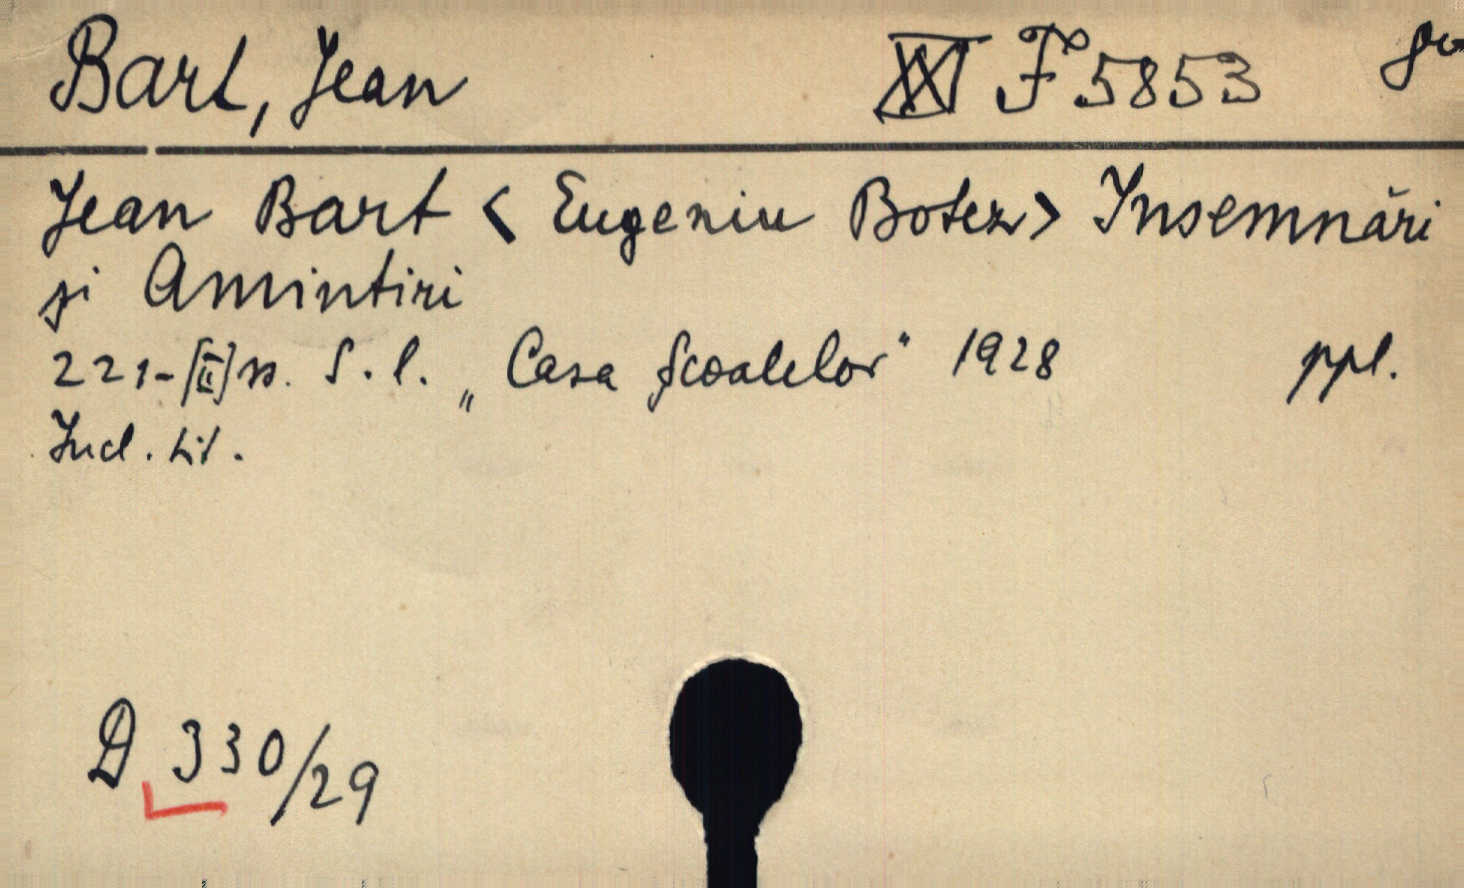 Bart, Jean XXI F 5853
Jean Bart < Eugeniu Botez > Insemnări
și Amintiri
221-[II] ss. S. l. „Casa Școalelor" 1928 ppl.
Incl. tit.
D 330/29